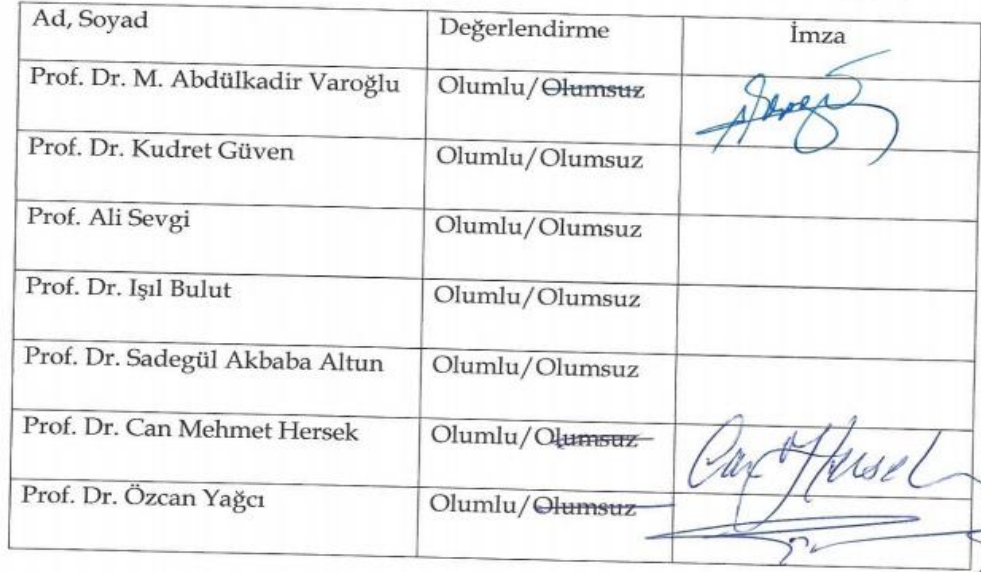 Ad, Soyad Değerlendirme İmza
Prof. Dr. M. Abdülkadir Varoğlu Olumlu/Olumsuz
Prof. Dr. Kudret Güven Olumlu/Olumsuz
Prof. Ali Sevgi Olumlu/Olumsuz
Prof. Dr. Işıl Bulut Olumlu/Olumsuz
Prof. Dr. Sadegül Akbaba Altun Olumlu/Olumsuz
Prof. Dr. Can Mehmet Hersek Olumlu/Olumsuz
Prof. Dr. Özcan Yağcı Olumlu/Olumsuz